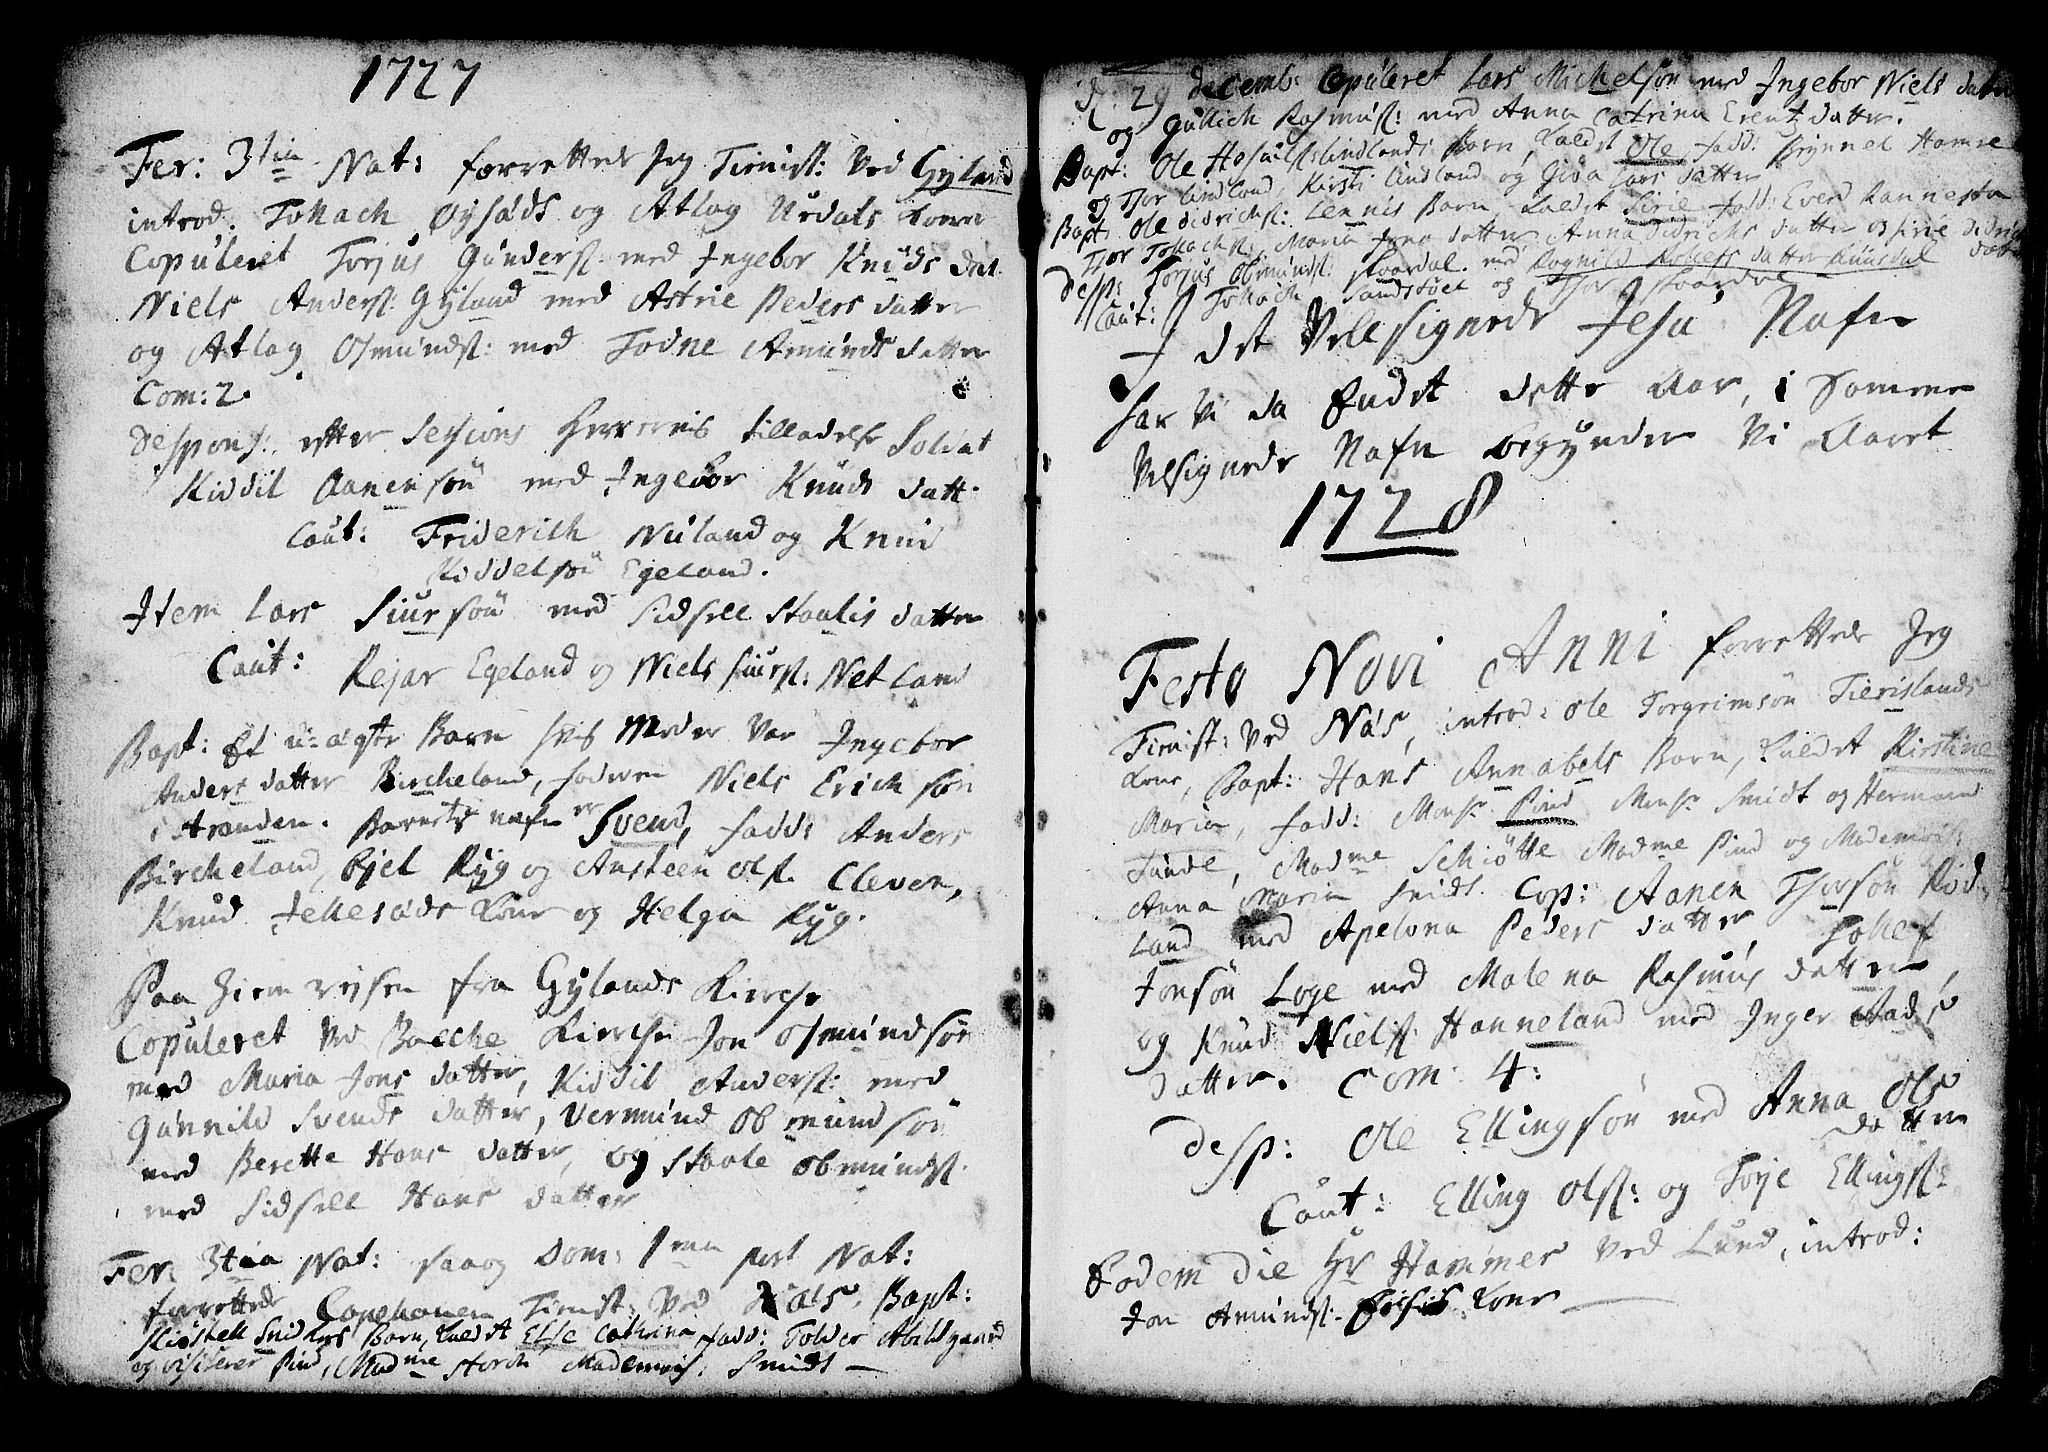 1727
Fer: 3tia Nat: forrettede Jeg Tienist: ved Gyland
introd. Tollach Øysæds og Atlag Urdals Koner
Copuleret Torjus Gunders: med Ingebor Knuds dat.
Niels Anders: Gyland med Astrie Peders datter
og Atlag Osmunds: med Todne Amunds datter
Com: 2.
Despons: efter Sessions Herrernis tilladelse Soldat
Kiddil Aanensøn med Ingebor Knuds datt.
Caut: Friderich Nuland og Knud
Kiddelsøn Egeland.
Item Lars Siursøn med Sidsell Staalis datter
Caut: Rejar Egeland og Niels Siurs: Netland
Bapt: Et u-ægte Barn hvis Moder var Ingebor
Anders datter Bircheland, faderen Niels Erichsøn
i Stranden. Barnets nafn er Svend, fadd: Anders
Bircheland, Kjel Ryg og Ansteen Ols. Cleven,
Knud Jellesæds Kone og Helga Ryg.
Paa Hiem rejsen fra Gylands Kirche
Copuleret ved Bacche Kirche Jon Osmundsøn
med Maria Jons datter, Kiddil Anders: med
Gunnild Svends datter, Vermund Obmundsøn
med Berette Hans datter, og Staale Obmunds.
med Sidsell Hans datter
Fer. 3tia Nat: saa og Dom: 1ma post Nat:
forrettede Capellanen Tienist: ved Næs. Bapt:
Sniders Barn, Kaldet Else Catrina, fadd: Tolder Abildgaard
og visiterer Pind, Madme Storch Mademois. Smidt
d. 29 Decemb: Copuleret Lars Michelsøn med Ingebor Niels datter
og Gullich Rasmus: med Anna Catrina Erents datter.
Bapt: Ole Lindlands Barn, Kaldet Ole, fadd: Brynnel
og Thor Lindland, Kirsti Lindland og Giva Lars datter
Bapt: Ole Didrichs: Lennis Barn Kaldet Sirie fadd: Everd Rannestø
Thor Tollachs: Maria Jons datter Anna Didrichs datter og Sirie Didrichs datter
Desp: Torjus Obmunds: Skaardal med Rognild Rollefs datter
Caut: Tollach Sandstøel og Thor Skaardal
I det Velsignede Jesu Nafn
har Vi da Endet dette Aar, i Samme
Velsignede Nafn begynder Vi Aaret
1728
Festo Novi Anni forrettede Jeg
Tienist: ved Næs, introd: Ole Torgrimsøn Tierislands
Kone, Bapt: Hans Annabels Barn, Kaldet Kirstine
Maria, fadd: Monsr Pind Monsr Smidt og Hermand
Sunde, Madme Schiøtte Madme Pind og Mademois:
Anna Maria Smidt. Cop: Aanen Thorsøn Rød-
land med Apelona Peders datter, Tollef
Jonsøn Loge med Malena Rasmus datter,
og Knud Niels: Hanneland med Inger
datter. Com: 4:
Desp: Ole Ellingsøn med Anna Ols
datter
Caut: Elling Ols: og Torje Ellings:
Eodem Die Hr Hammer ved Lund, introd:
Jon Amunds: Kone